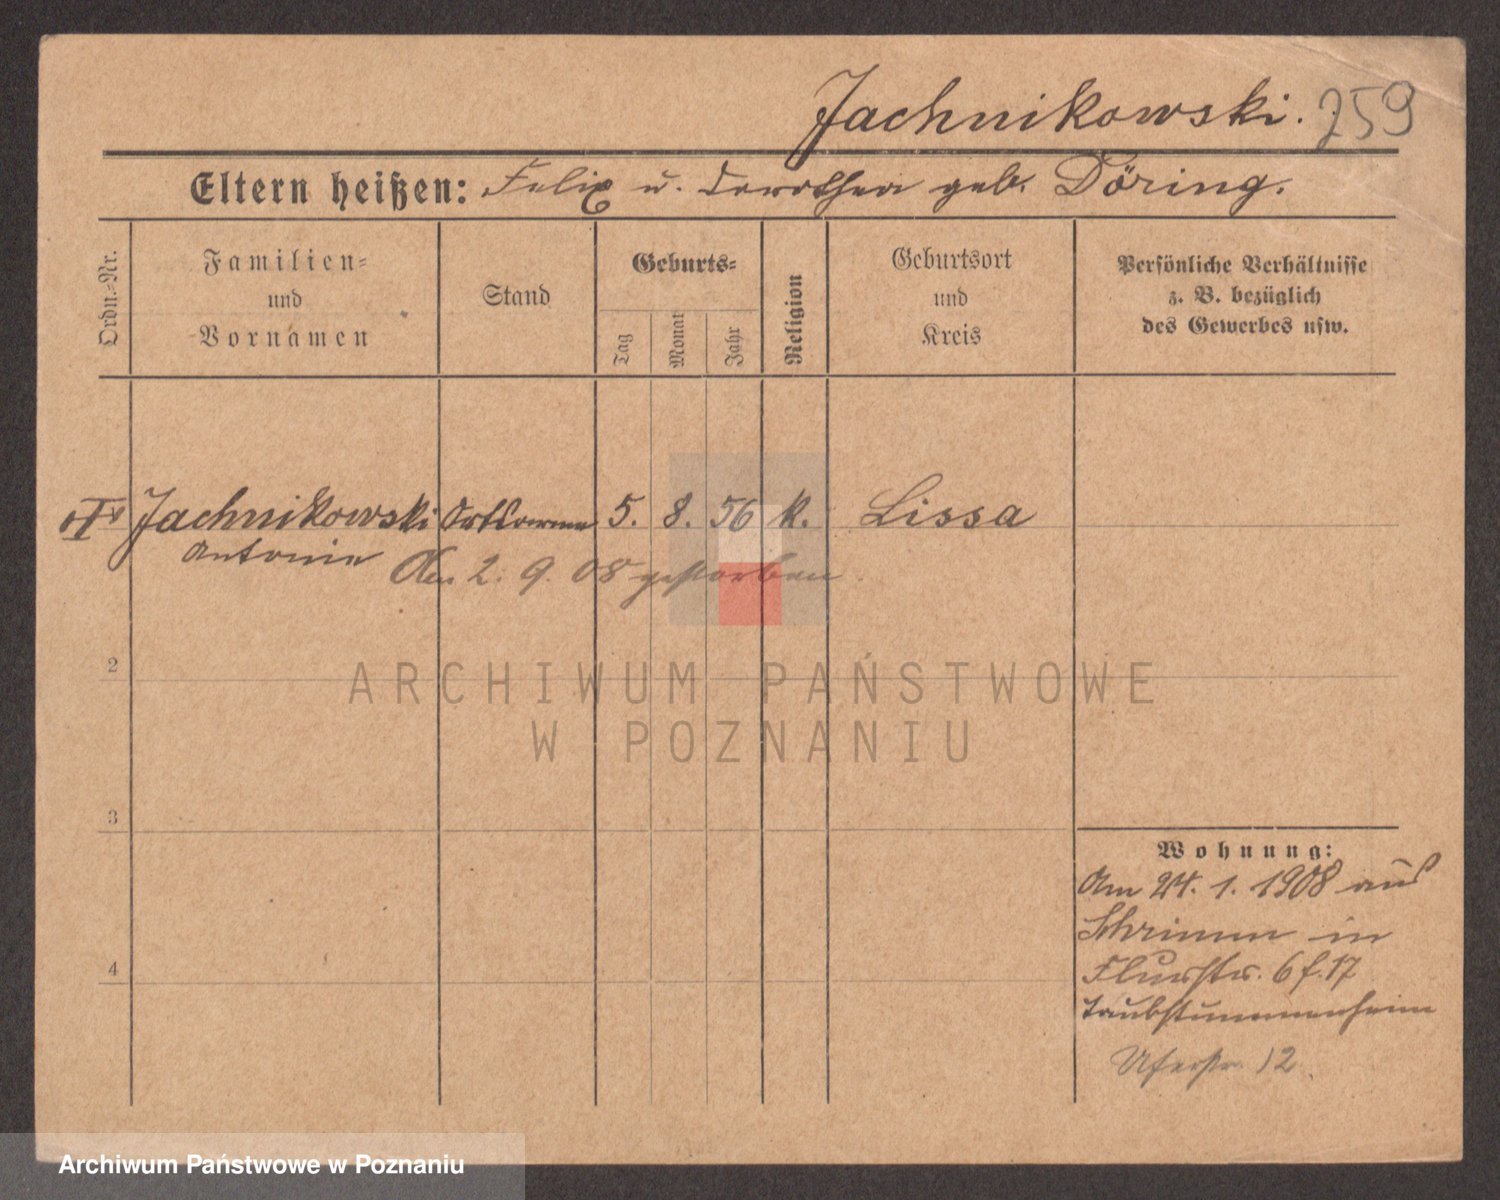 Jachnikowski. 259
Eltern heißen: Felix u. Dorothea geb. Döring.
Ordn.-Nr.
Familien-
und
Vornamen
Stand
Geburts-
Tag
Monat
Jahr
Religion
Geburtsort
und
Kreis
Persönliche Verhältnisse
z. B. bezüglich
des Gewerbes usw.
Jachnikowski Ortsarme 5. 8. 56 k. Lissa
Antonie
Am 2. 9. 08 gestorben.
2
3
4
Wohnung:
Am 24. 1. 1908 aus
Schrimm in
Flurstr. 6 f. 17
Taubstummenheim
Uferstr. 12
ARCHIWUM PAŃSTWOWE
W POZNANIU
Archiwum Państwowe w Poznaniu